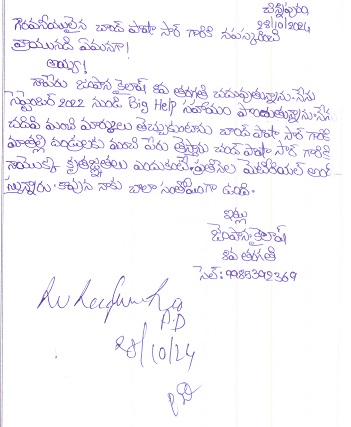 చిన్నపురం
28/10/2024
గౌరవనీయులైన చాంద్ పాషా సార్ గారికి నమస్కరించి
వ్రాయునది ఏమనగా!
అయ్యా!
నాపేరు జంపాన కైలాష్ 8వ తరగతి చదువుతున్నాను. నేను
సెప్టెంబర్ 2022 నుండి Big Help సహాయం పొందుతున్నాను. నేను
చదివి మంచి మార్కులు తెచ్చుకుంటాను చాంద్ పాషా సార్ గారికి
మాతల్లి దండ్రులకు మంచి పేరు తెస్తాను చాంద్ పాషా సార్ గారికి
నాయొక్క కృతజ్ఞతలు ఎందుకంటే. ప్రతినెల మెటీరియల్
న్నారు. కావున నాకు చాలా సంతోషంగా ఉంది.
ఇట్లు
జంపాన కైలాష్
8వ తరగతి
సెల్:9985392369
A.D
28/10/24